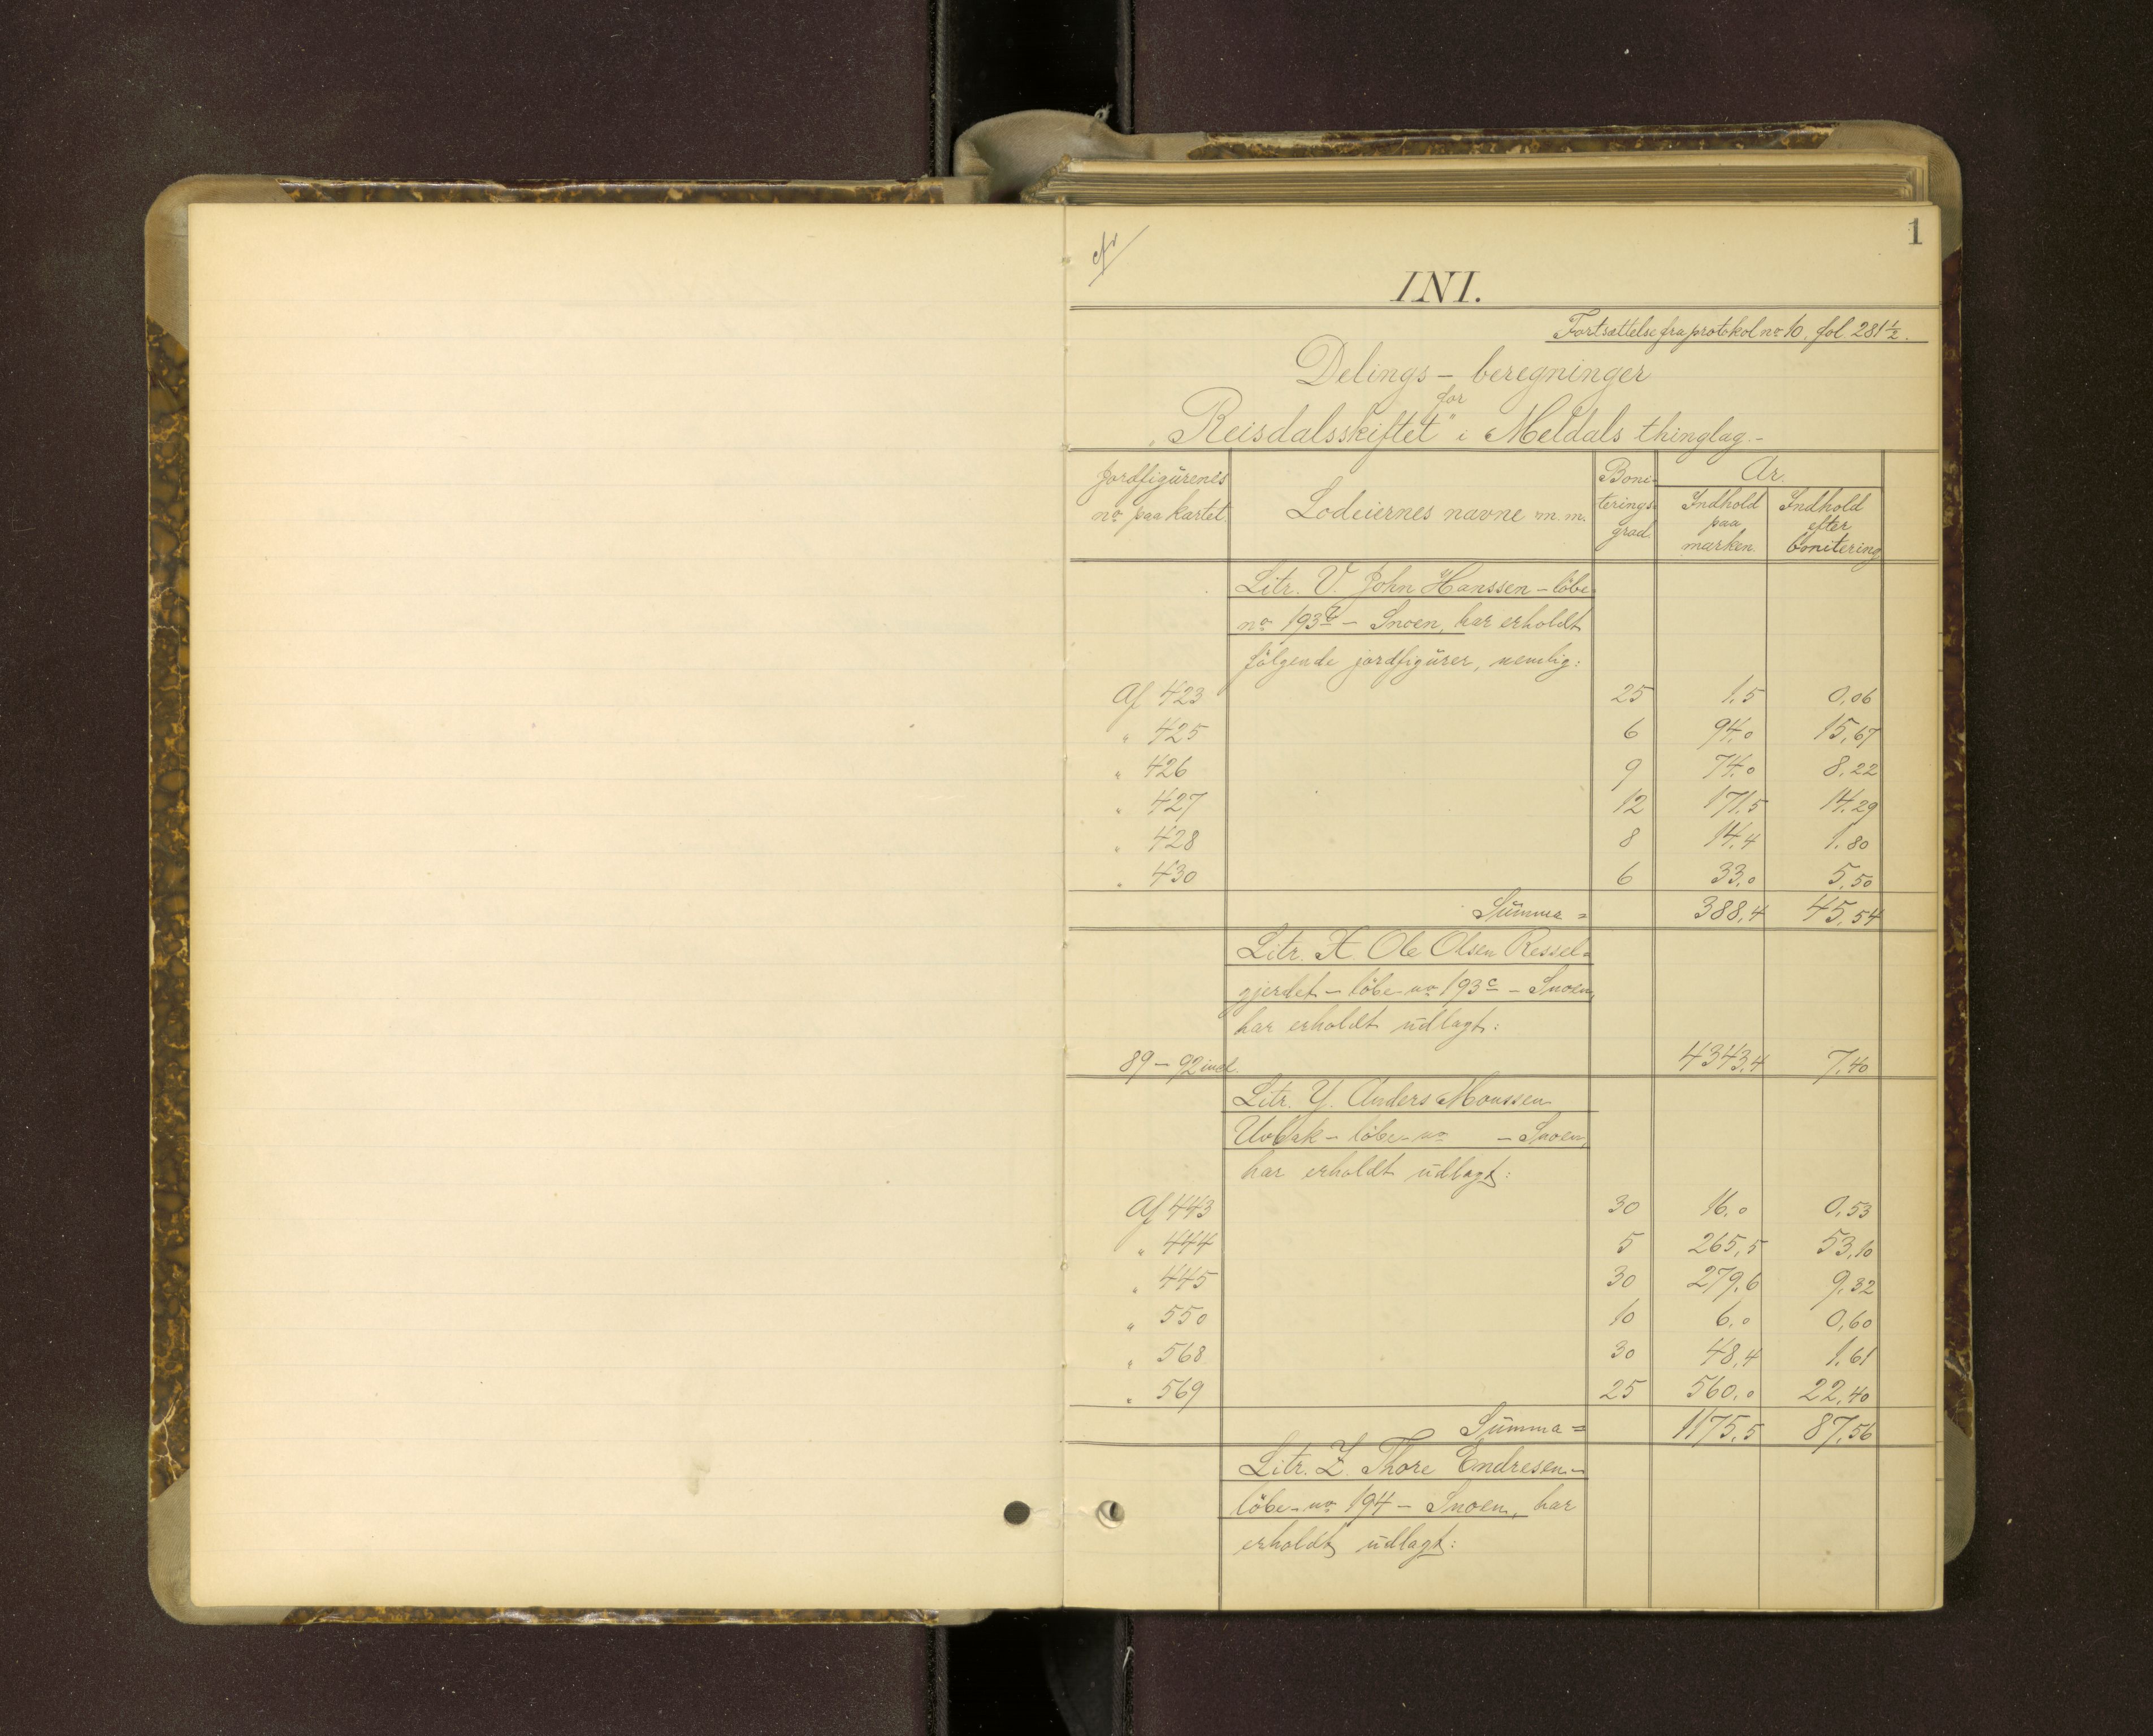 1
INI.
Fortsættelse fra protokol no 10, fol. 281 1/2.
Delings - beregninger
for
"Reisdalsskiftet" i Meldals thinglag.-
Jordfigurenes no paa kartet. Lodeiernes navne m. m. Boniterings grad. Ar. Indhold paa marken. Indhold efter bonitering
Litr. V. John Hanssen - løbe
no 193 - Snoen, har erholdt
følgende jordfigurer, nemlig:
Af 423 25 1,5 0,06
" 425 6 94,0 15,67
" 426 9 74,0 8,22
" 427 12 171,5 14,29
" 428 8 14,4 1,80
" 430 6 33,0 5,50
Summa = 388,4 45,54
Litr. X. Ole Olsen Ressel=
gjerdet - løbe no 193c - Snoen,
har erholdt udlagt:
89 - 92 incl. 4343,4 7,40
Litr. Y. Anders Monssen
løbe-no - Snoen,
har erholdt udlagt:
Af 443 30 16,0 0,53
" 444 5 265,5 53,10
" 445 30 279,6 9,32
" 550 10 6,0 0,60
" 568 30 48,4 1,61
" 569 25 560,0 22,40
Summa = 1175,5 87,56
Litr. Z. Thore Endresen -
løbe-no 194 - Snoen, har
erholdt udlagt: